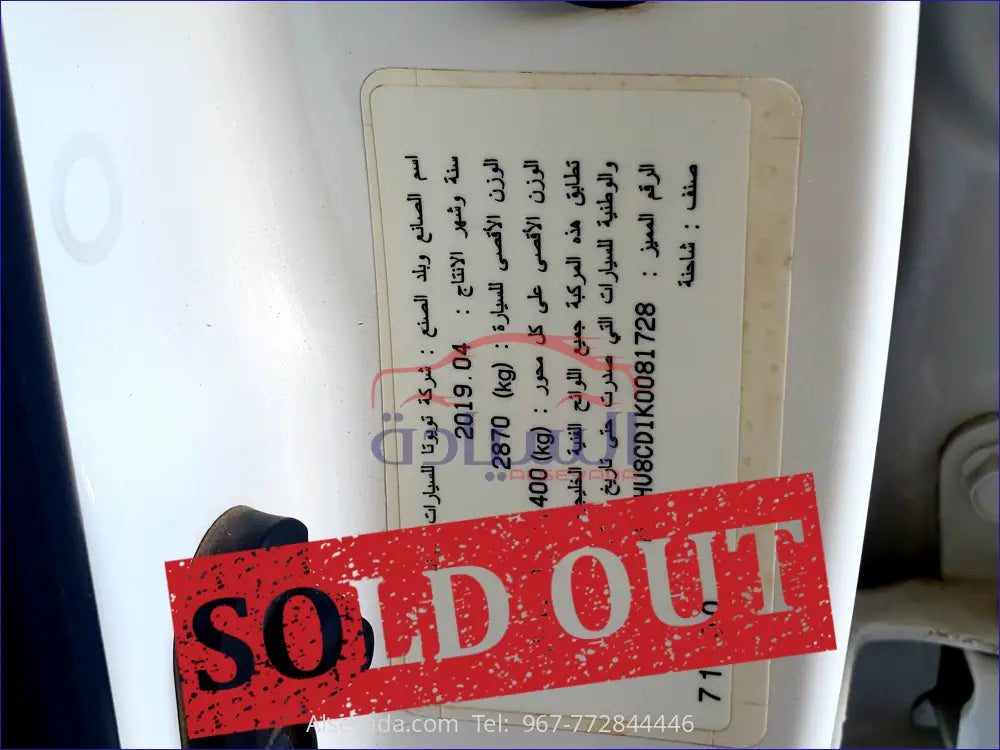 اسم الصانع وبلد الصنع : شركة تويوتا للسيارات
سنة وشهر الانتاج : 2019.04
الوزن الأقصى للسيارة : (kg) 2870
الوزن الأقصى على كل محور : (kg) 400
تطابق هذه المركبة جميع اللوائح الفنية
والوطنية للسيارات التي صدرت حتى تاريخ
الرقم المميز : HU8CD1K0081728
صنف : شاحنة
السيادة
ALSEYADA
SOLD OUT
Alseyada.com Tel: 967-772844446